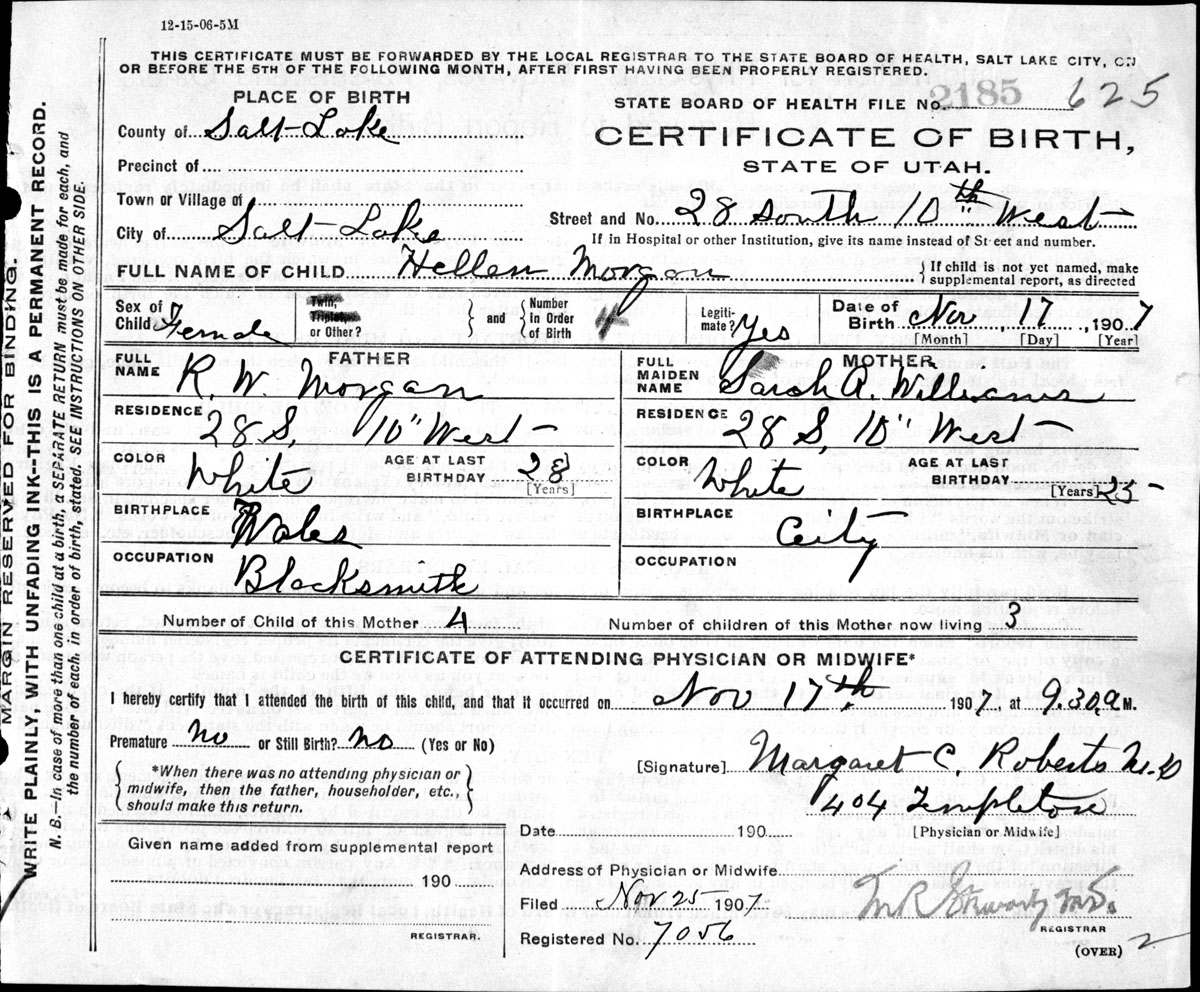 12-15-06-5M
THIS CERTIFICATE MUST BE FORWARDED BY THE LOCAL REGISTRAR TO THE STATE BOARD OF HEALTH, SALT LAKE CITY, ON
OR BEFORE THE 5TH OF THE FOLLOWING MONTH, AFTER FIRST HAVING BEEN PROPERLY REGISTERED.
PLACE OF BIRTH
STATE BOARD OF HEALTH FILE No. 2185 625
County of Salt Lake
CERTIFICATE OF BIRTH,
Precinct of
STATE OF UTAH.
Town or Village of
Street and No. 28 South 10th West
City of Salt Lake
If in Hospital or other Institution, give its name instead of Street and number.
FULL NAME OF CHILD Hellen Morgan
{ If child is not yet named, make
supplemental report, as directed
Sex of Child Female
Twin, Triplet, or Other? } and { Number in Order of Birth
Legiti-mate? Yes
Date of Birth Nov, 17, 1907
[Month] [Day] [Year]
FATHER
FULL NAME R. W. Morgan
MOTHER
FULL MAIDEN NAME Sarah A. Williams
RESIDENCE 28 S, 10" West
RESIDENCE 28 S, 10" West
COLOR White AGE AT LAST BIRTHDAY 28 [Years]
COLOR White AGE AT LAST BIRTHDAY [Years] 25
BIRTHPLACE Wales
BIRTHPLACE City
OCCUPATION Blacksmith
OCCUPATION
Number of Child of this Mother 4
Number of children of this Mother now living 3
CERTIFICATE OF ATTENDING PHYSICIAN OR MIDWIFE*
I hereby certify that I attended the birth of this child, and that it occurred on Nov 17th 1907, at 9.30a M.
Premature no or Still Birth? no (Yes or No)
[Signature] Margaret C. Roberts M.D
{ *When there was no attending physician or
midwife, then the father, householder, etc.,
should make this return. }
404 Templeton
Date 190
[Physician or Midwife]
Given name added from supplemental report
190
REGISTRAR.
Address of Physician or Midwife
Filed Nov 25 1907
REGISTRAR
Registered No. 7056
(OVER) 2
MARGIN RESERVED FOR BINDING.
WRITE PLAINLY, WITH UNFADING INK--THIS IS A PERMANENT RECORD.
N. B.—In case of more than one child at a birth, a SEPARATE RETURN must be made for each, and
the number of each, in order of birth, stated. SEE INSTRUCTIONS ON OTHER SIDE.